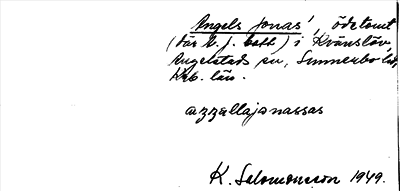 Angels Jonas', ödetomt
(där A. J. bott) i Kvänslöv,
Angelstads sn, Sunnerbo hd,
Krb. län.
azzǝllajonassas
K. Salomonsson 1949.